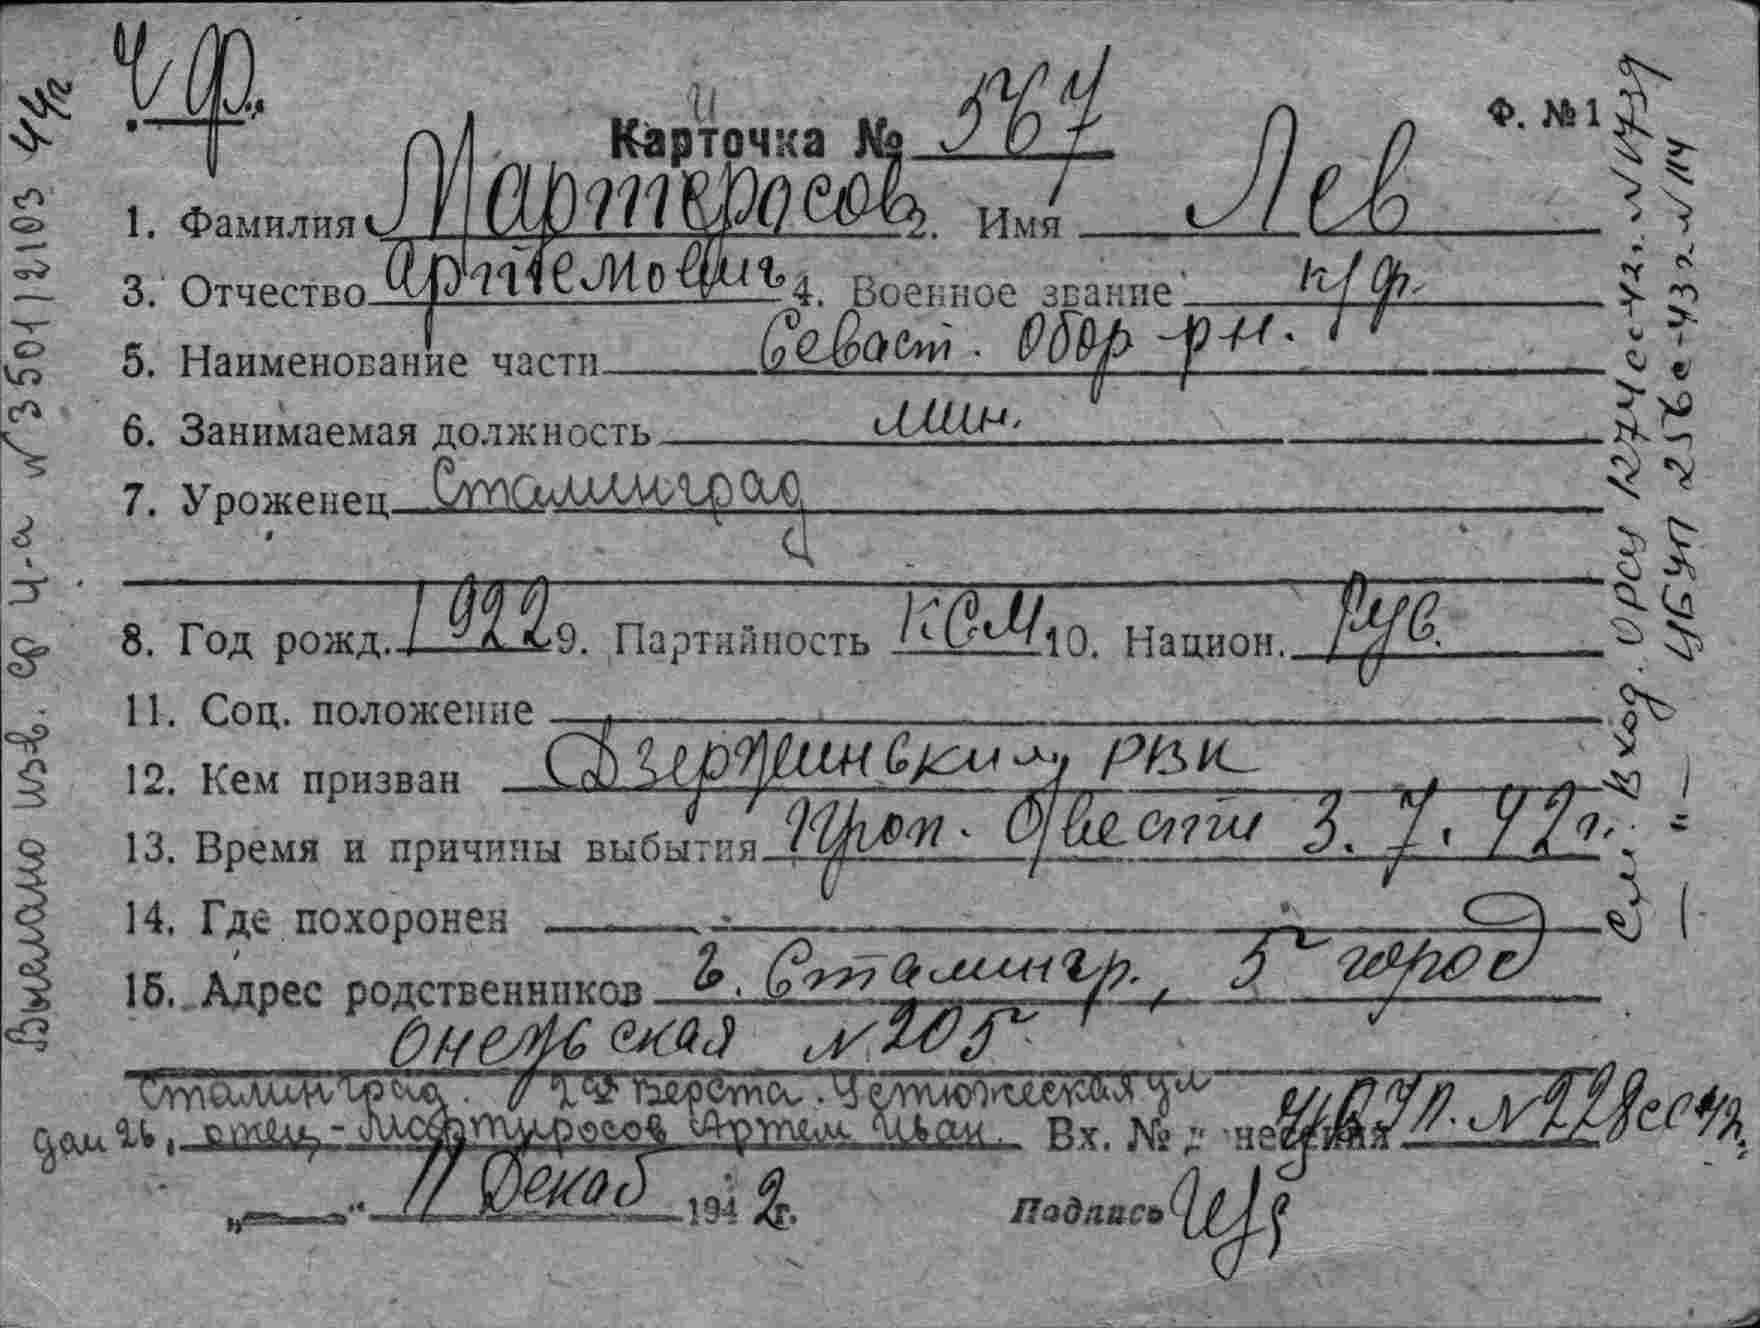 Ч.Ф.
Ф. № 1
Карточка № 567
1. Фамилия Мартеросов 2. Имя Лев
3. Отчество Артемович 4. Военное звание к/ф.
5. Наименование части Севаст. Обор. р-н.
6. Занимаемая должность мин.
7. Уроженец Сталинград
8. Год рожд. 1922 9. Партийность КСМ 10. Национ. Рус.
11. Соц. положение
12. Кем призван Дзержинским РВК
13. Время и причины выбытия Проп. б/вести 3.7.42 г.
14. Где похоронен
15. Адрес родственников г. Сталингр., 5 город
онежская № 205
Сталинград. 2ая Верста. Устюжеская ул
дом 26, отец - Мартиросов Артем Иван. Вх. № донесения ЦБУП. № 228сс 42г.
„ “ 11 Декаб 1942г. Подпись
Выслано изв. ф 4-а № 3501/2103 44г
См. Вход. ОРСУ 1274сс-42г. № 1739
— " — ЦБУП 256с-43г № 114